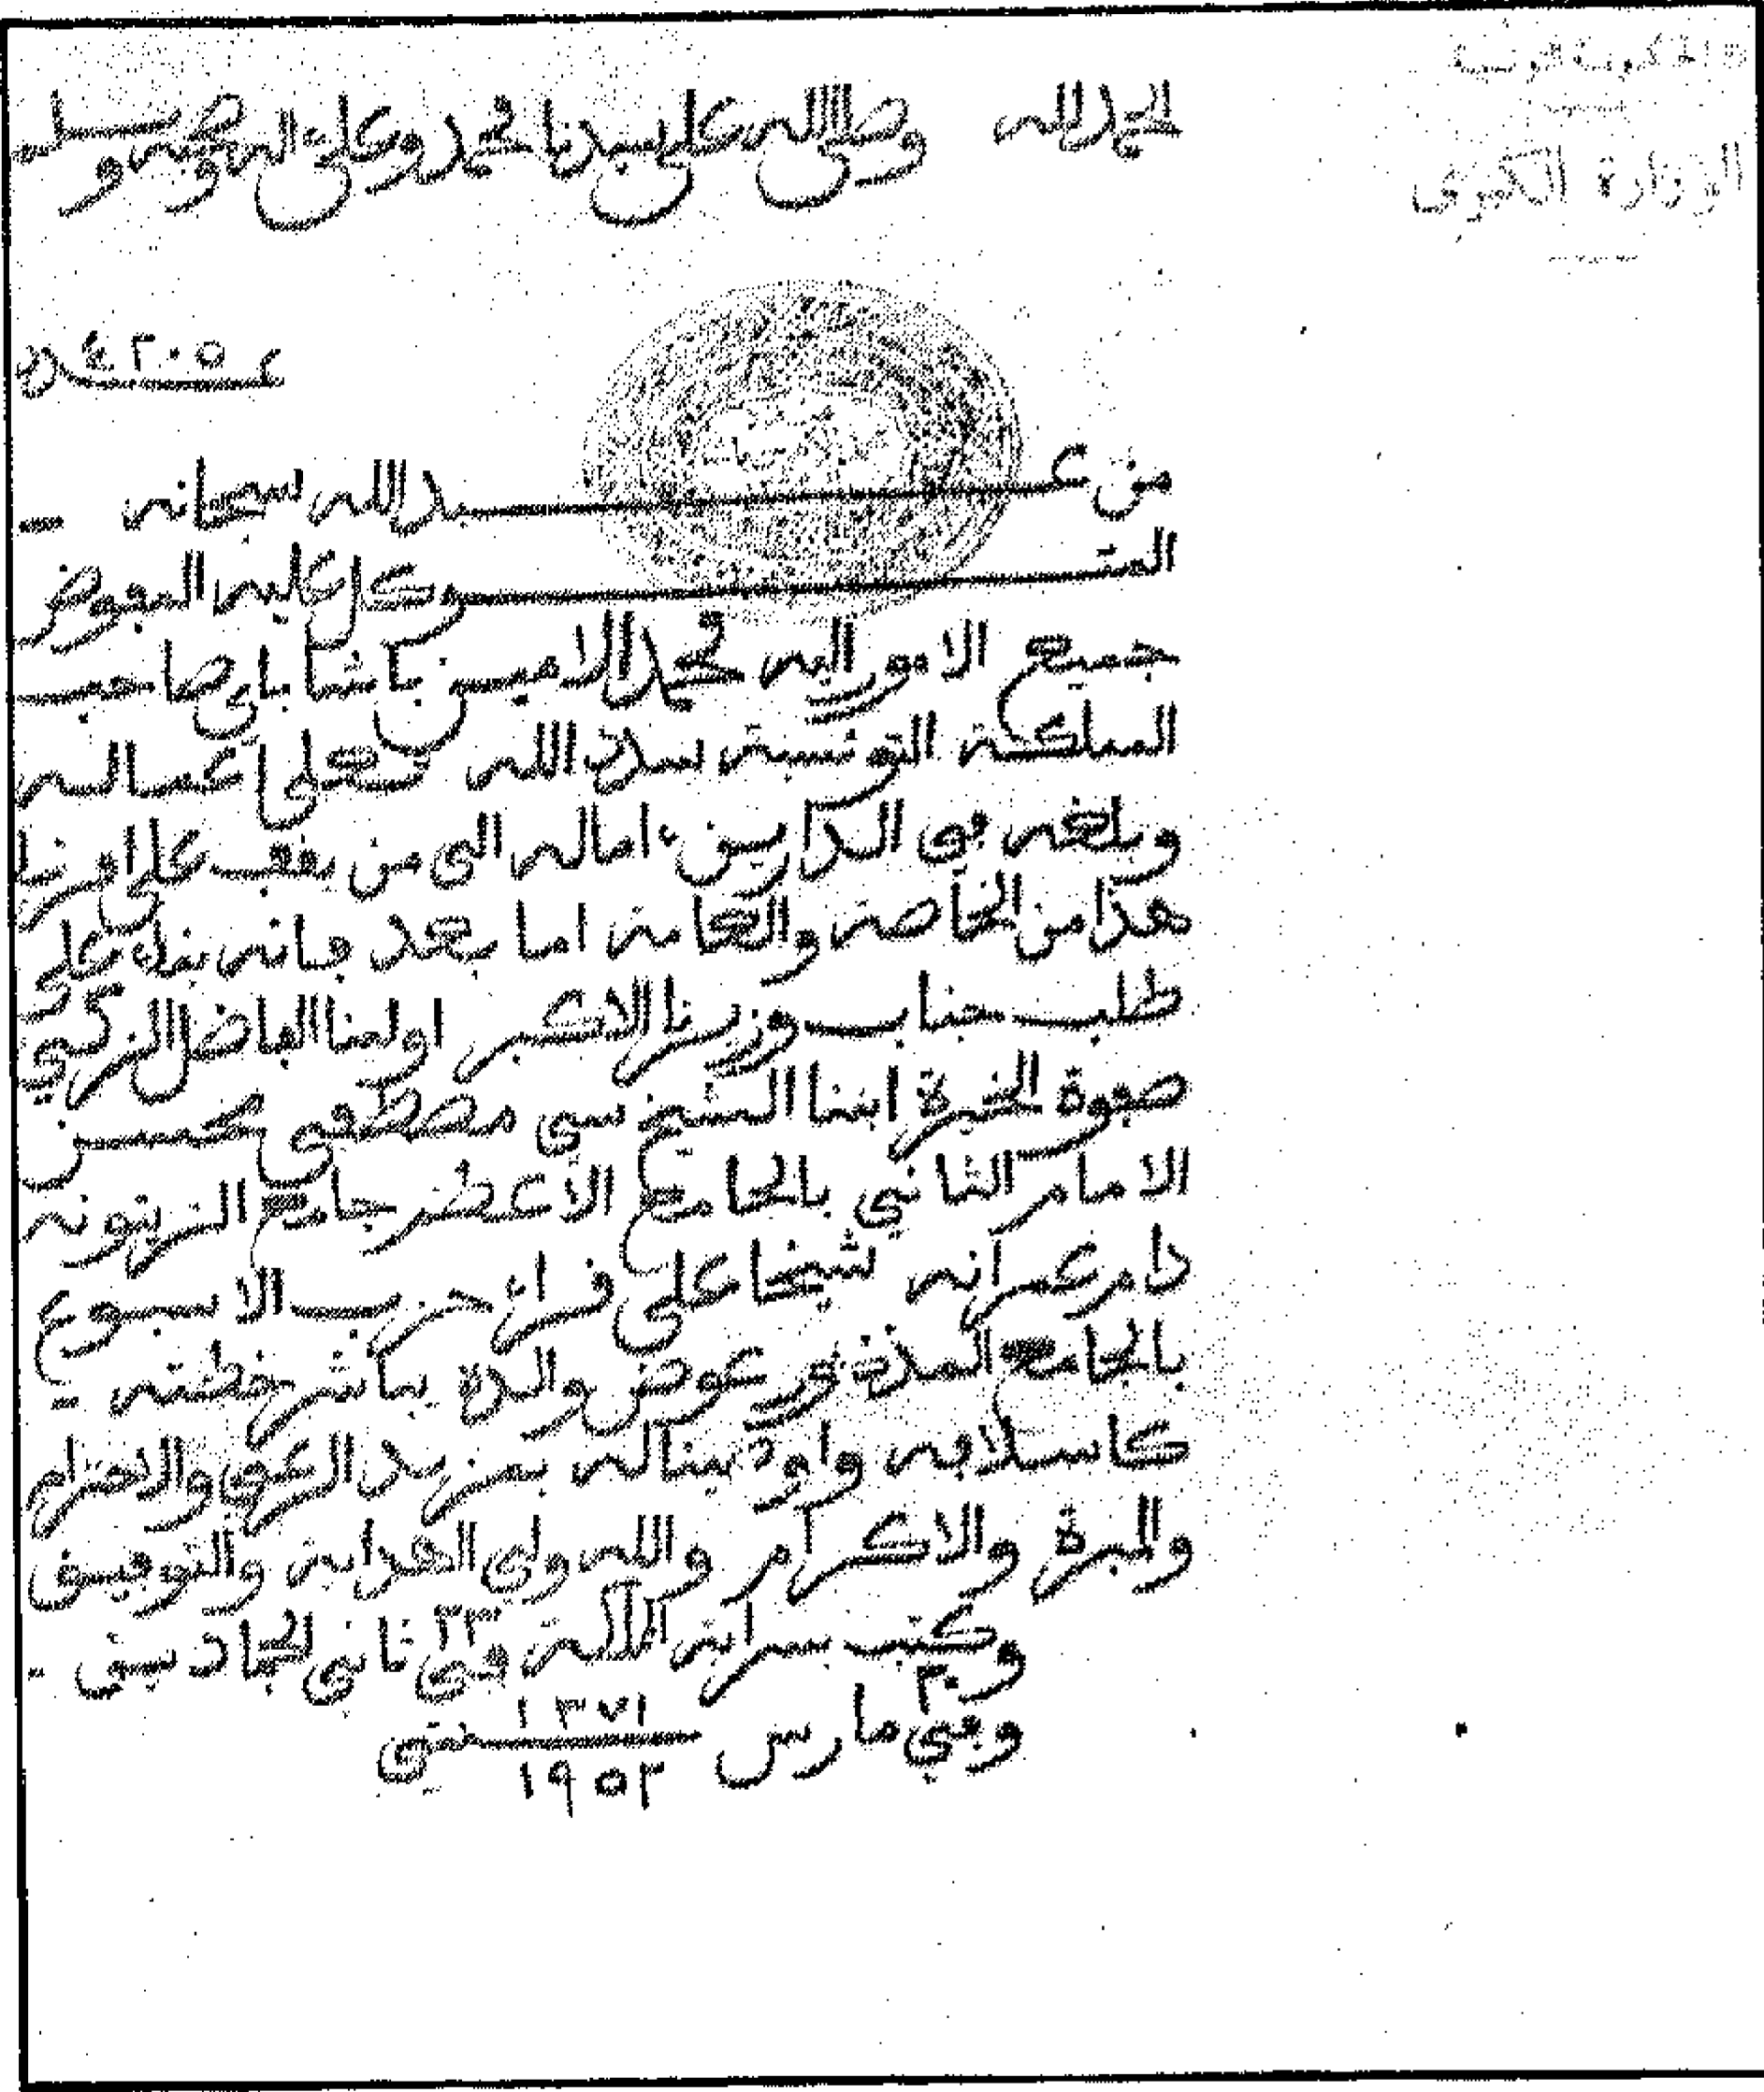 الحكومة التونسية
الوزارة الكبرى
الحمد لله وصلى الله على سيدنا محمد وعلى اله وصحبه وسلم
٤٢٠٥ عدد
من عبد الله سبحانه
المتوكل عليه المفوض
جميع الامور اليه محمد الامين باشا باي صاحب
المملكة التونسية سدد الله تعلى اعماله
وبلغه في الدارين ءاماله الى من يقف على امرنا
هذا من الخاصة والعامة اما بعد فانه بناء على
طلب جناب وزيرنا الاكبر اولينا الفاضل الزكي
صفوة الخيرة ابننا الشيخ سي مصطفى محسن
الامام الثاني بالجامع الاعظم جامع الزيتونه
دام عمرانه شيخا على قراء حزب الاسبوع
بالجامع المذكور عوض والده يباشر خطته
كاسلافه واوصينا له بمزيد الرعي والاحترام
والمبرة والاكرام والله ولي الهداية والتوفيق
وكتب بسراية المملكة في ٢٣ ثاني الجمادين
وفي ٢٠ مارس ١٣٧١ ١٩٥٢ سنتي